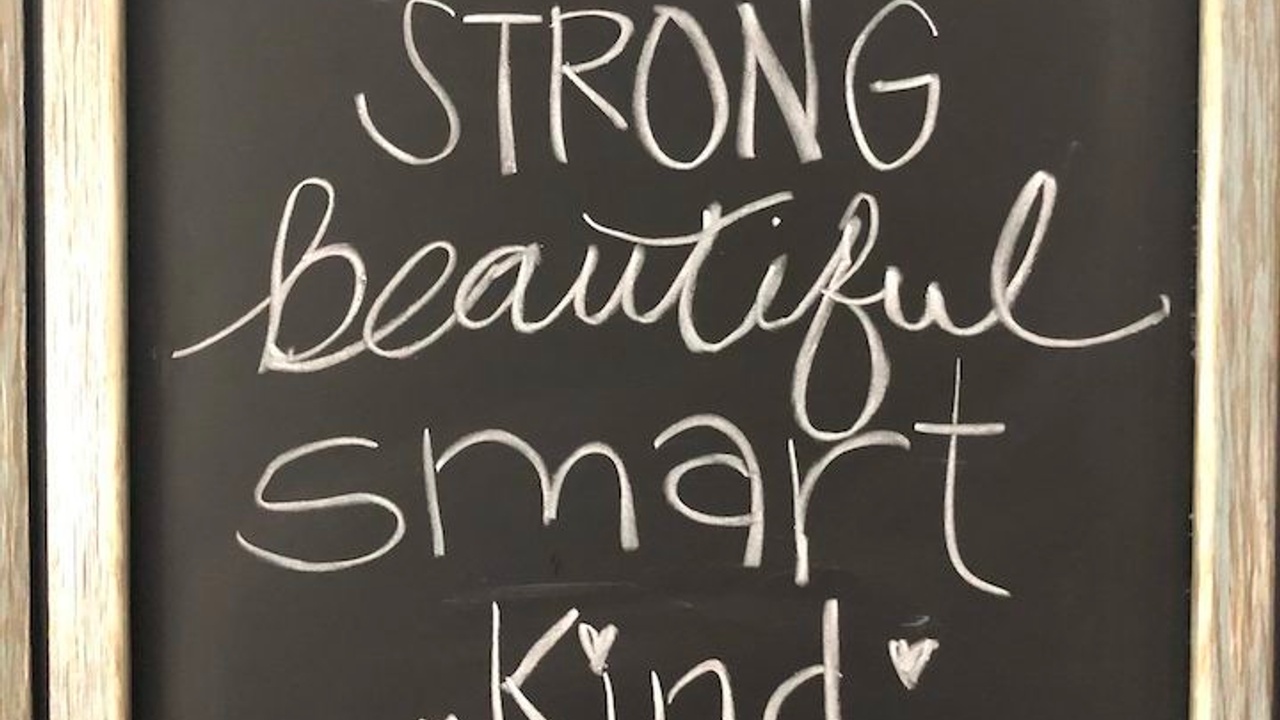 STRONG
beautiful
smart
Kind